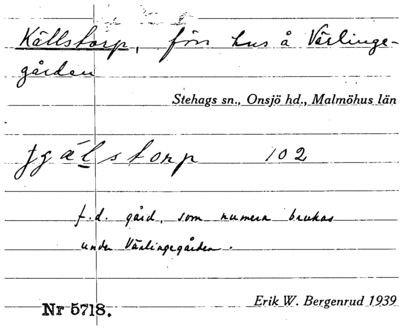 Källstorp, förr hus å Värlinge-
gården
Stehags sn., Onsjö hd., Malmöhus län
102
f.d. gård, som numera brukas
under Värlingegården.
Erik W. Bergenrud 1939
Nr 5718.